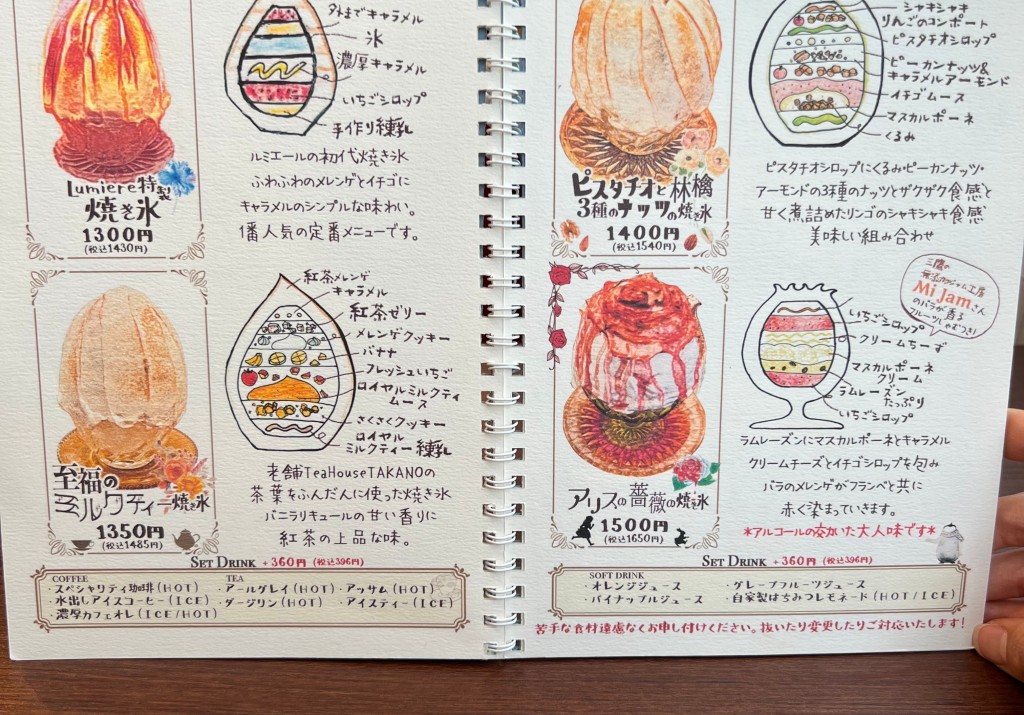 外までキャラメル
氷
濃厚キャラメル
いちごシロップ
手作り練乳
Lumiere特製
焼き氷
1300円
(税込1430円)
ルミエールの初代焼き氷
ふわふわのメレンゲとイチゴに
キャラメルのシンプルな味わい。
1番人気の定番メニューです。
紅茶メレンゲ
キャラメル
紅茶ゼリー
メレンゲクッキー
バナナ
フレッシュいちご
ロイヤルミルクティ
ムース
さくさくクッキー
ロイヤル
ミルクティー練乳
至福の
ミルクティー焼き氷
1350円
(税込1485円)
老舗TeaHouseTAKANOの
茶葉をふんだんに使った焼き氷
バニラリキュールの甘い香りに
紅茶の上品な味。
SET DRINK +360円 (税込396円)
COFFEE
・スペシャリティ珈琲(HOT)
・水出しアイスコーヒー(ICE)
・濃厚カフェオレ(ICE/HOT)
TEA
・アールグレイ(HOT)・アッサム(HOT)
・ダージリン(HOT)・アイスティー(ICE)
シャキシャキ
りんごのコンポート
ピスタチオシロップ
ピーカンナッツ&
キャラメルアーモンド
イチゴムース
マスカルポーネ
くるみ
ピスタチオと林檎
3種のナッツの焼き氷
1400円
(税込1540円)
ピスタチオシロップにくるみ・ピーカンナッツ・
アーモンドの3種のナッツとザクザク食感と
甘く煮詰めたリンゴのシャキシャキ食感
美味しい組み合わせ
三鷹の
Mi Jamさん
のバラが香る
いちごシロップ
クリームちーず
マスカルポーネ
クリーム
ラムレーズン
たっぷり
いちごシロップ
アリスの薔薇の焼き氷
1500円
(税込1650円)
ラムレーズンにマスカルポーネとキャラメル
クリームチーズとイチゴシロップを包み
バラのメレンゲがフランベと共に
赤く染まっていきます。
*アルコールの効いた大人味です*
SET DRINK +360円 (税込396円)
SOFT DRINK
・オレンジジュース
・パイナップルジュース
・グレープフルーツジュース
・自家製はちみつレモネード(HOT/ICE)
苦手な食材遠慮なくお申し付けください。抜いたり変更したりご対応いたします!